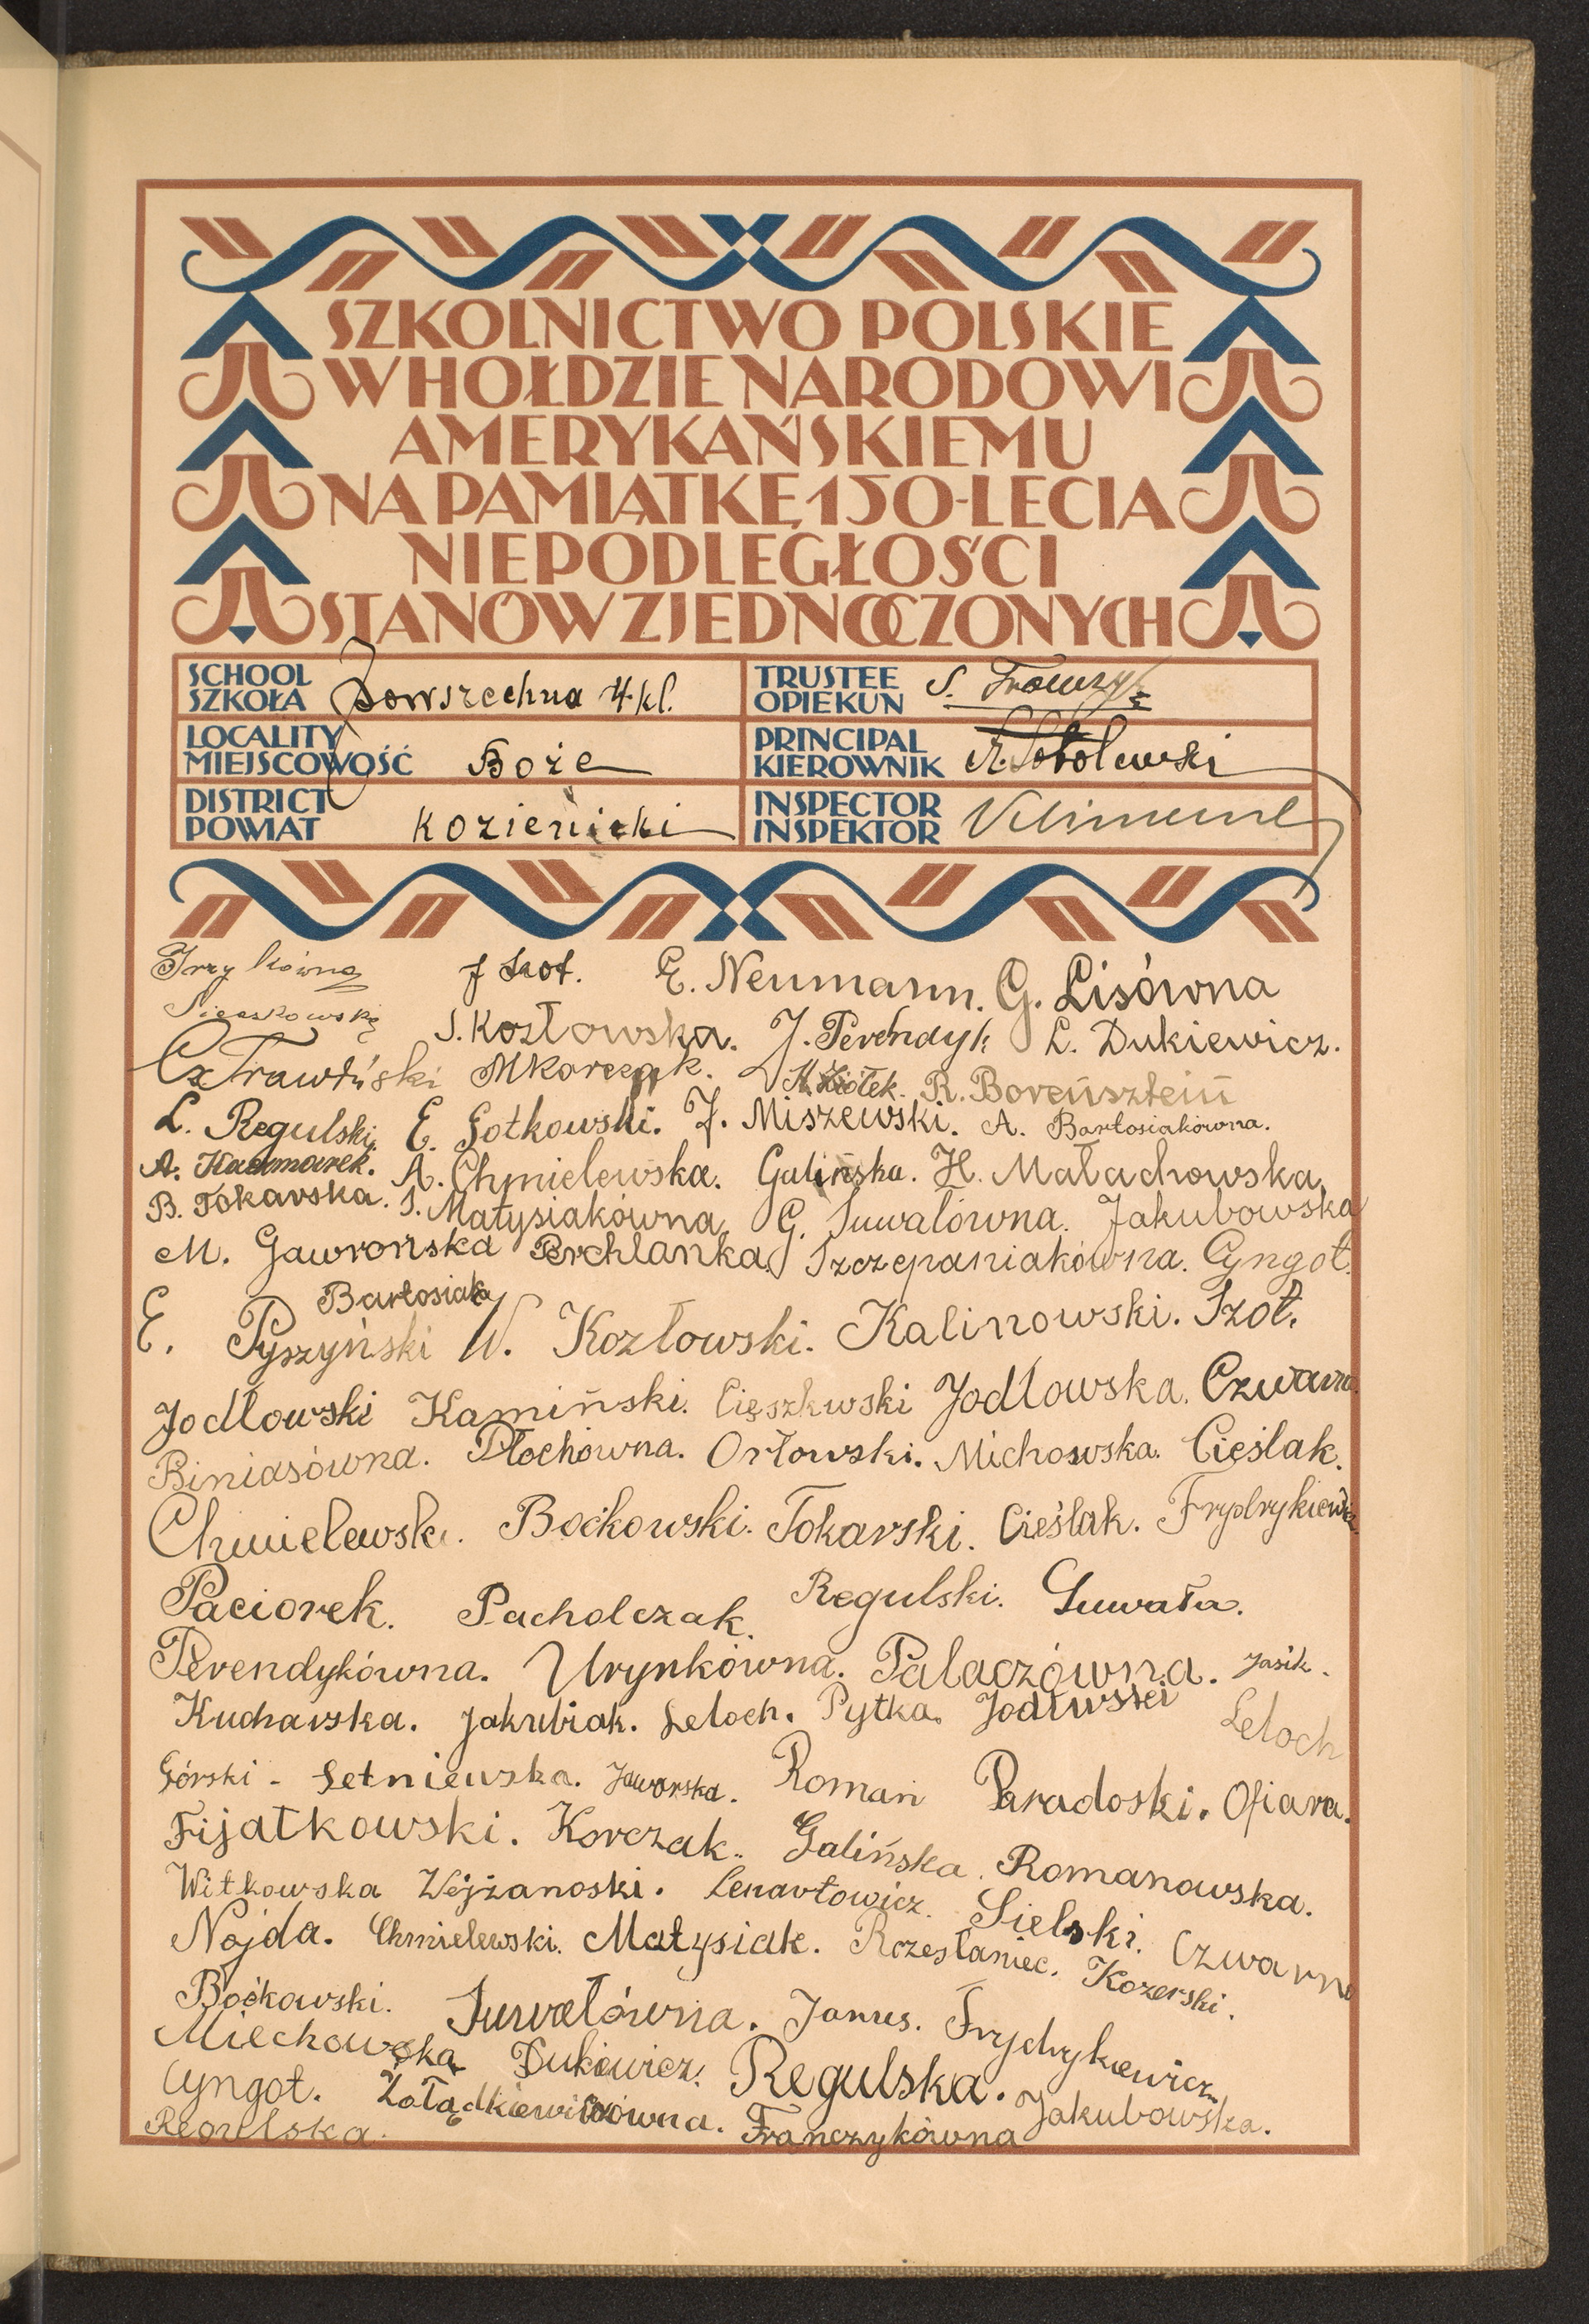 SZKOLNICTWO POLSKIE
W HOŁDZIE NARODOWI
AMERYKAŃSKIEMU
NA PAMIĄTKĘ 150-LECIA
NIEPODLEGŁOŚCI
STANÓW ZJEDNOCZONYCH
SCHOOL
SZKOŁA Powszechna 4 kl.
TRUSTEE
OPIEKUN S.
LOCALITY
MIEJSCOWOŚĆ Boże
PRINCIPAL
KIEROWNIK Sobolewski
DISTRICT
POWIAT Kozienicki
INSPECTOR
INSPEKTOR
J Szot. E. Neumann. G. Lisówna
S. Kozłowska. J. Perendyk L. Dukiewicz.
Cz Trawiński M Korczak. M. Ziółek. R. Boreńsztein
L. Regulski, E. Gotkowski. J. Miszewski. A. Bartosiakówna.
A. Kaczmarek. A. Chmielewska. Galińska. H. Małachowska.
B. Tokarska. S. Matysiakówna, G. Suwałówna. Jakubowska
M. Gawrońska Perchlanka. Szczepaniakówna. Cyngot.
Bartosiak
E. Pyszyński W. Kozłowski. Kalinowski. Szot.
Jodłowski Kamiński. Cięszkwski Jodłowska. Czwarno
Biniasówna. Płochówna. Orłowski. Michowska. Cieślak.
Chmielewski. Boćkowski. Tokarski. Cieślak. Frydrykiewicz.
Paciorek. Pacholczak. Regulski. Suwała.
Perendykówna. Urynkówna. Pałaczówna. Jasik.
Kucharska. Jakubiak. Leloch. Pytka. Jodłwski Leloch
Górski - Letniewska. Jaworska. Roman Paradoski. Ofiara.
Fijałkowski. Korczak. Galińska. Romanowska.
Witkowska Wejżanoski. Lenartowicz. Sielski. Czwarno
Najda. Chmielewski. Matysiak. Rozesłaniec. Kozerski.
Boćkowski. Suwałówna. Janus. Frydrykiewicz.
Miechowska Dukiewicz. Regulska. Jakubowska.
Cyngot. Żołądkiewiczówna. Frańczykówna
Regulska.